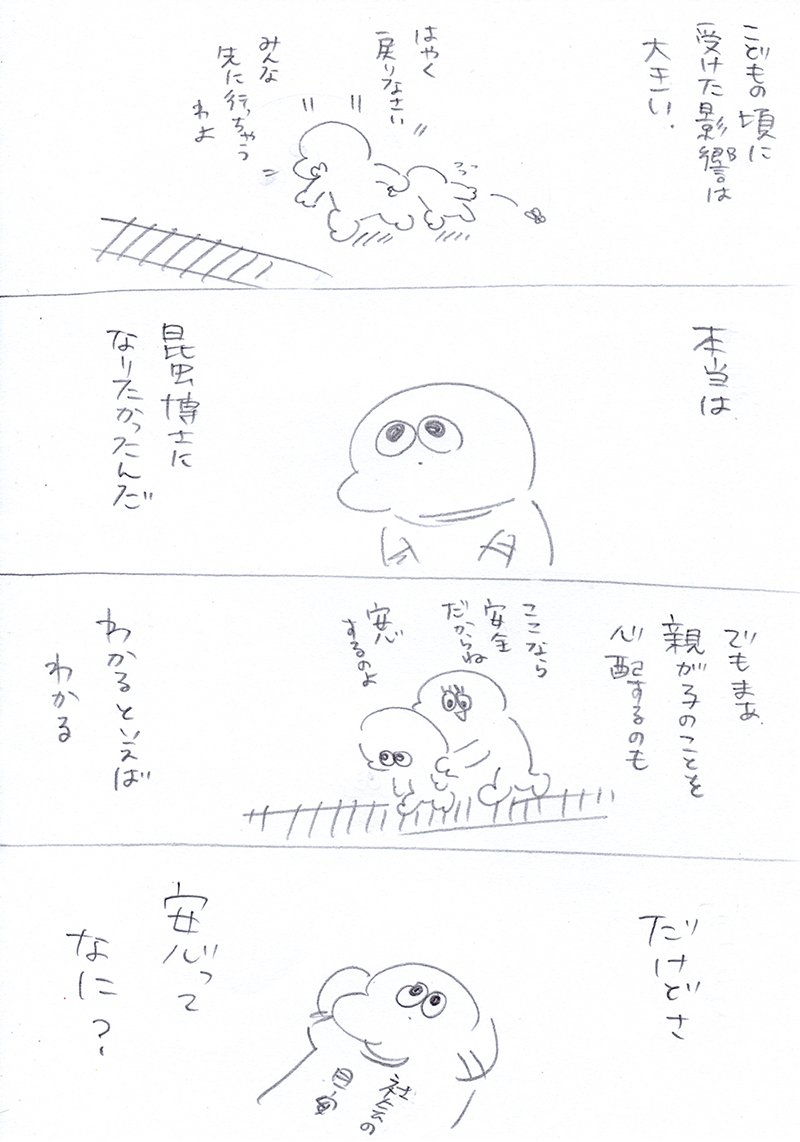 こどもの頃に
受けた影響は
大きい.
はやく
戻りなさい
みんな
先に行っちゃう
わよ
本当は
昆虫博士に
なりたかったんだ
でもまぁ
親が子のことを
心配するのも
ここなら
安全
だからね
安心
するのよ
わかるといえば
わかる
だけどさ
社会の
安心って
なに?